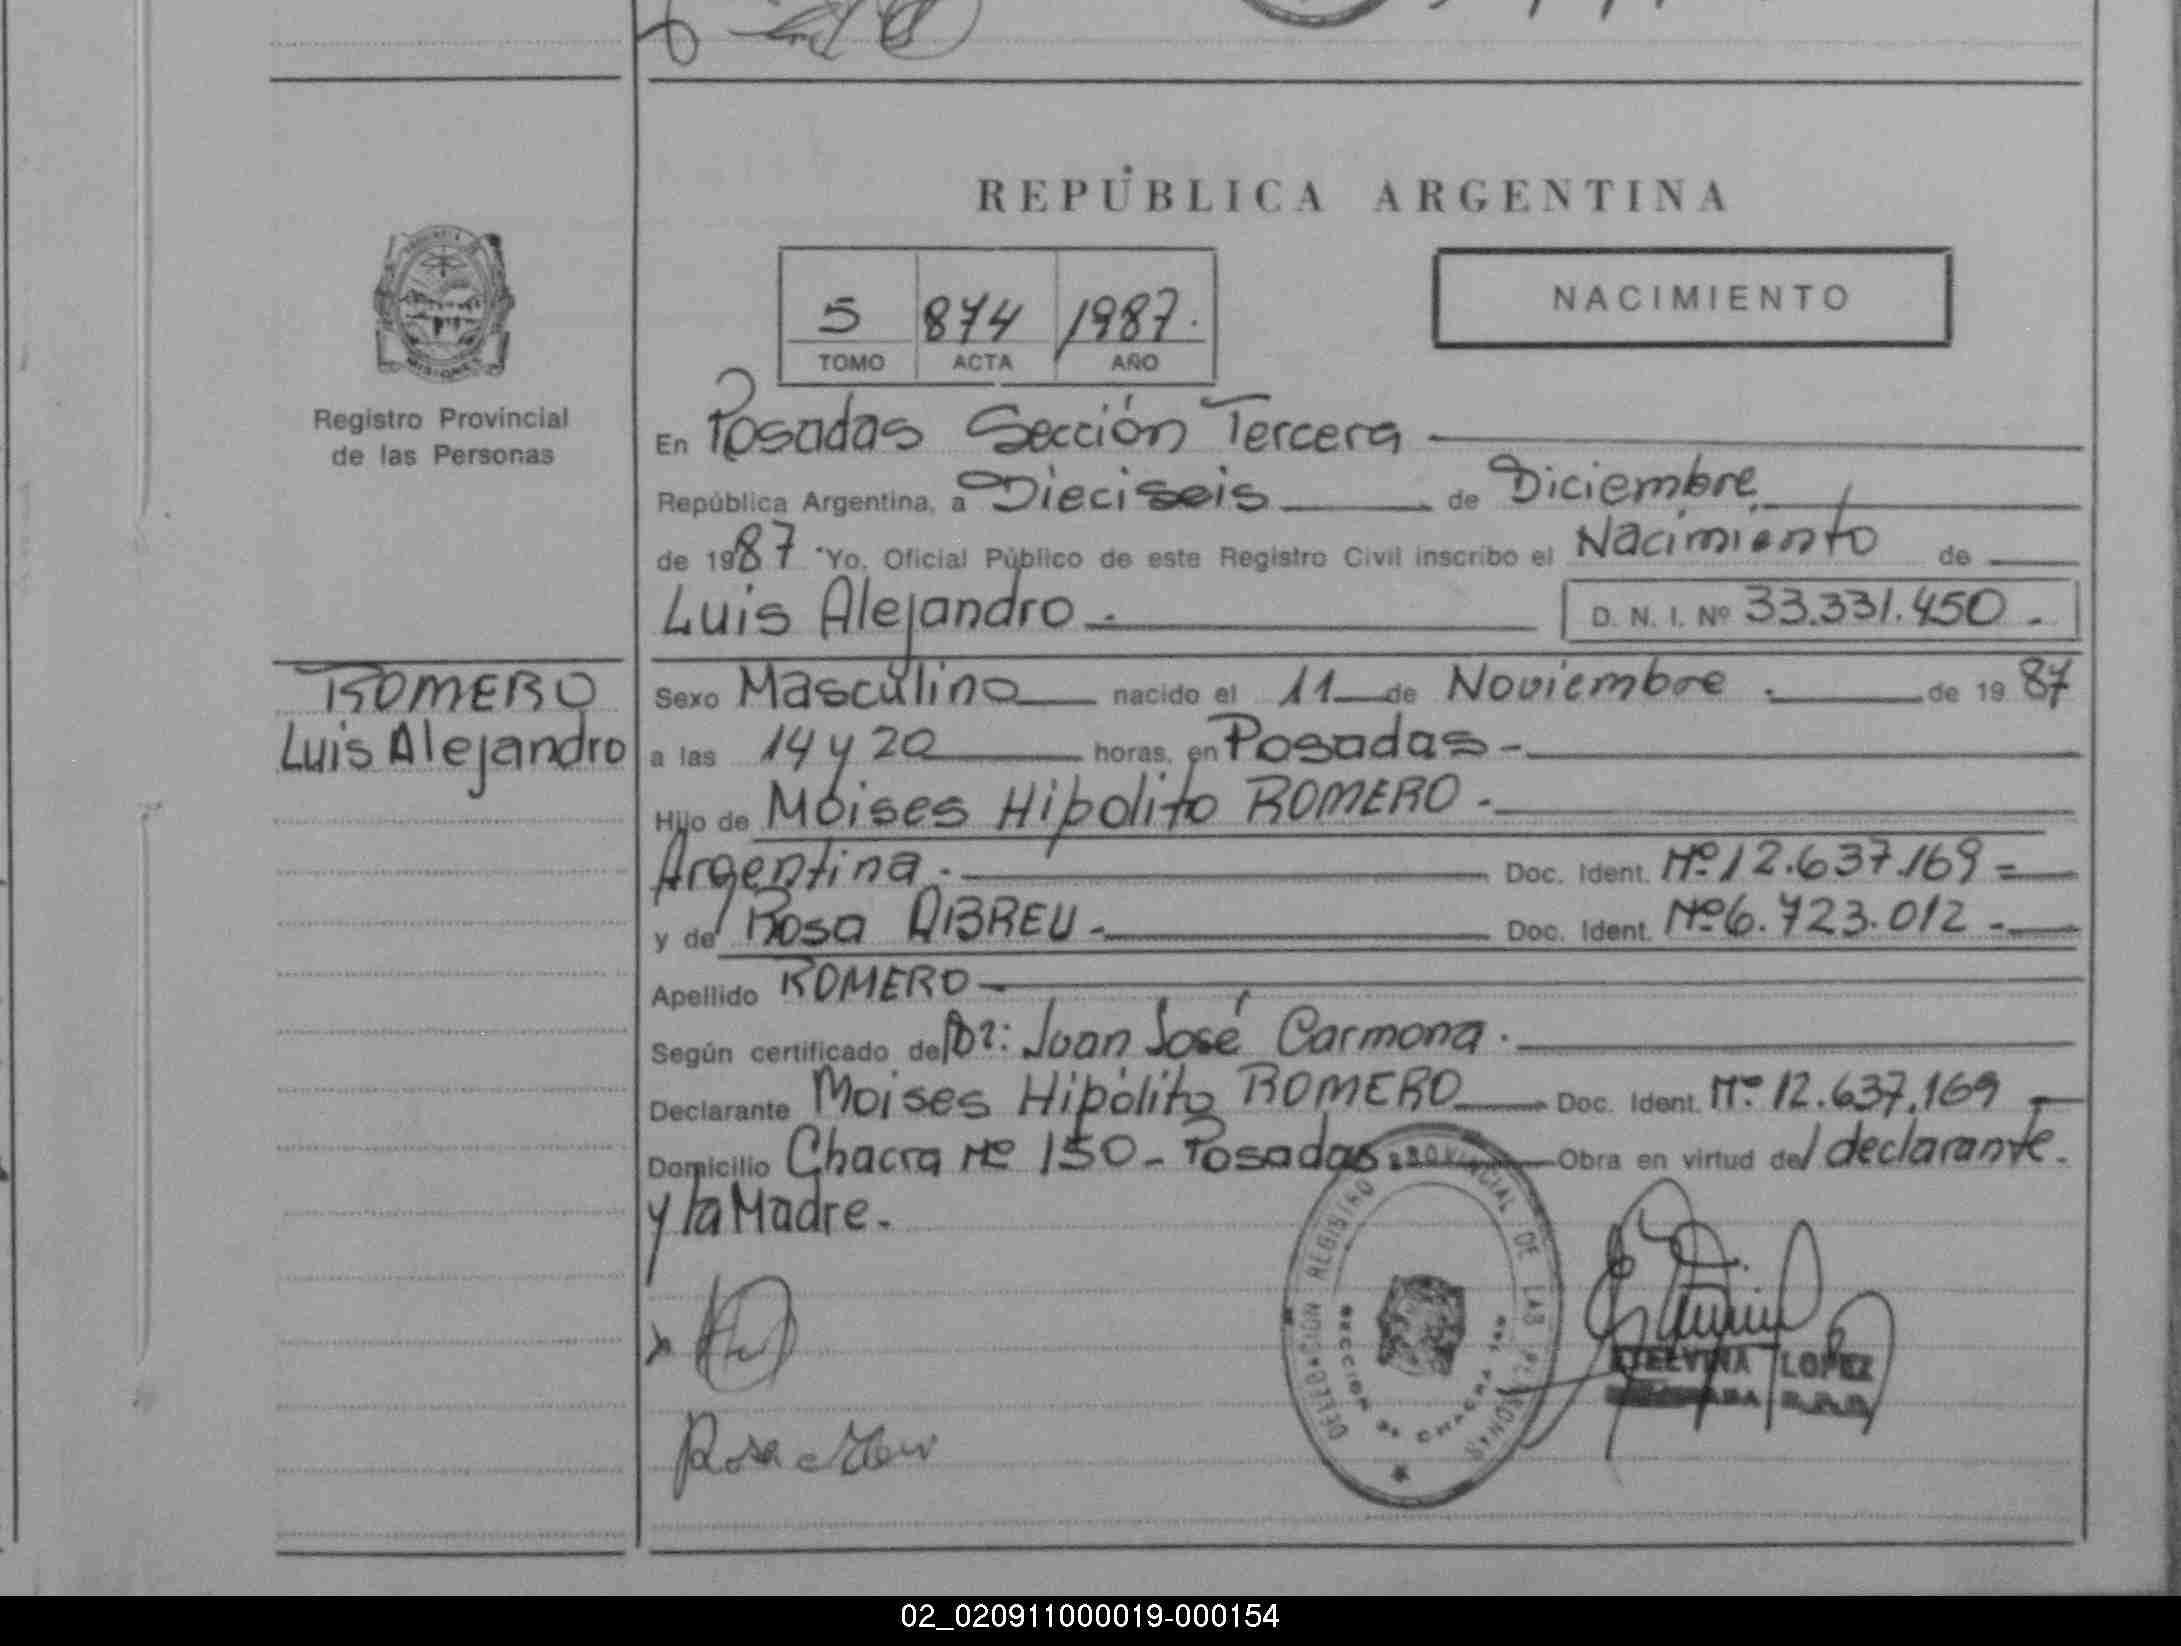 REPÚBLICA ARGENTINA
5 874 1987.
TOMO ACTA AÑO
NACIMIENTO
Registro Provincial
de las Personas
En Posadas Sección Tercera
República Argentina, a Dieciseis de Diciembre
de 1987 Yo, Oficial Público de este Registro Civil inscribo el Nacimiento de
Luis Alejandro.- D. N. I. Nº 33.331.450.
ROMERO
Luis Alejandro
Sexo Masculino nacido el 11 de Noviembre . de 19 87
a las 14 y 20 horas, en Posadas -
Hijo de Moises Hipolito ROMERO -
Argentina - Doc. Ident. Nº 12.637.169 =
y de Rosa ABREU - Doc. Ident. Nº 6.723.012 -
Apellido ROMERO -
Según certificado del Dr: Juan José Carmona.
Declarante Moises Hipólito ROMERO Doc. Ident. Nº 12.637.169
Domicilio Chacra Nº 150 - Posadas Obra en virtud del declarante.
y la Madre.-
DELEGACION REGISTRO PROVINCIAL DE LAS PERSONAS
SECCION 3ª CHACRA
ETELVINA LOPEZ
Rosa Abreu
02_020911000019-000154